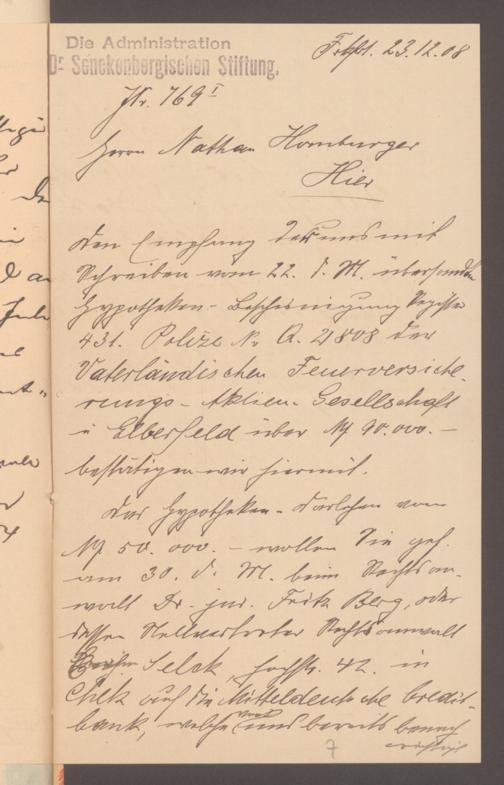 Die Administration
Dr Senckenbergischen Stiftung.
Frkft. 23.12.08
JNr. 769 I
Herrn Nathan Homburger
Hier
Den Empfang der uns mit
Schreiben vom 22. d. M. übersandten
Hypotheken-Bescheinigung Register
431. Polize No A. 21808 der
Vaterländischen Feuerversiche-
rungs-Aktien-Gesellschaft
in Elberfeld über M 90.000.-
bestätigen wir hiermit.
Das Hypotheken-Darlehen von
M 50.000.- wollen Sie gef.
am 30. d. M. beim Rechtsan-
walt Dr. jur. Fritz Berg, oder
dessen Stellvertreter Rechtsanwalt
Selck, 42. in
Chek auf die Mitteldeutsche Credit-
bank, welche uns bereits benach-
richtigt
7